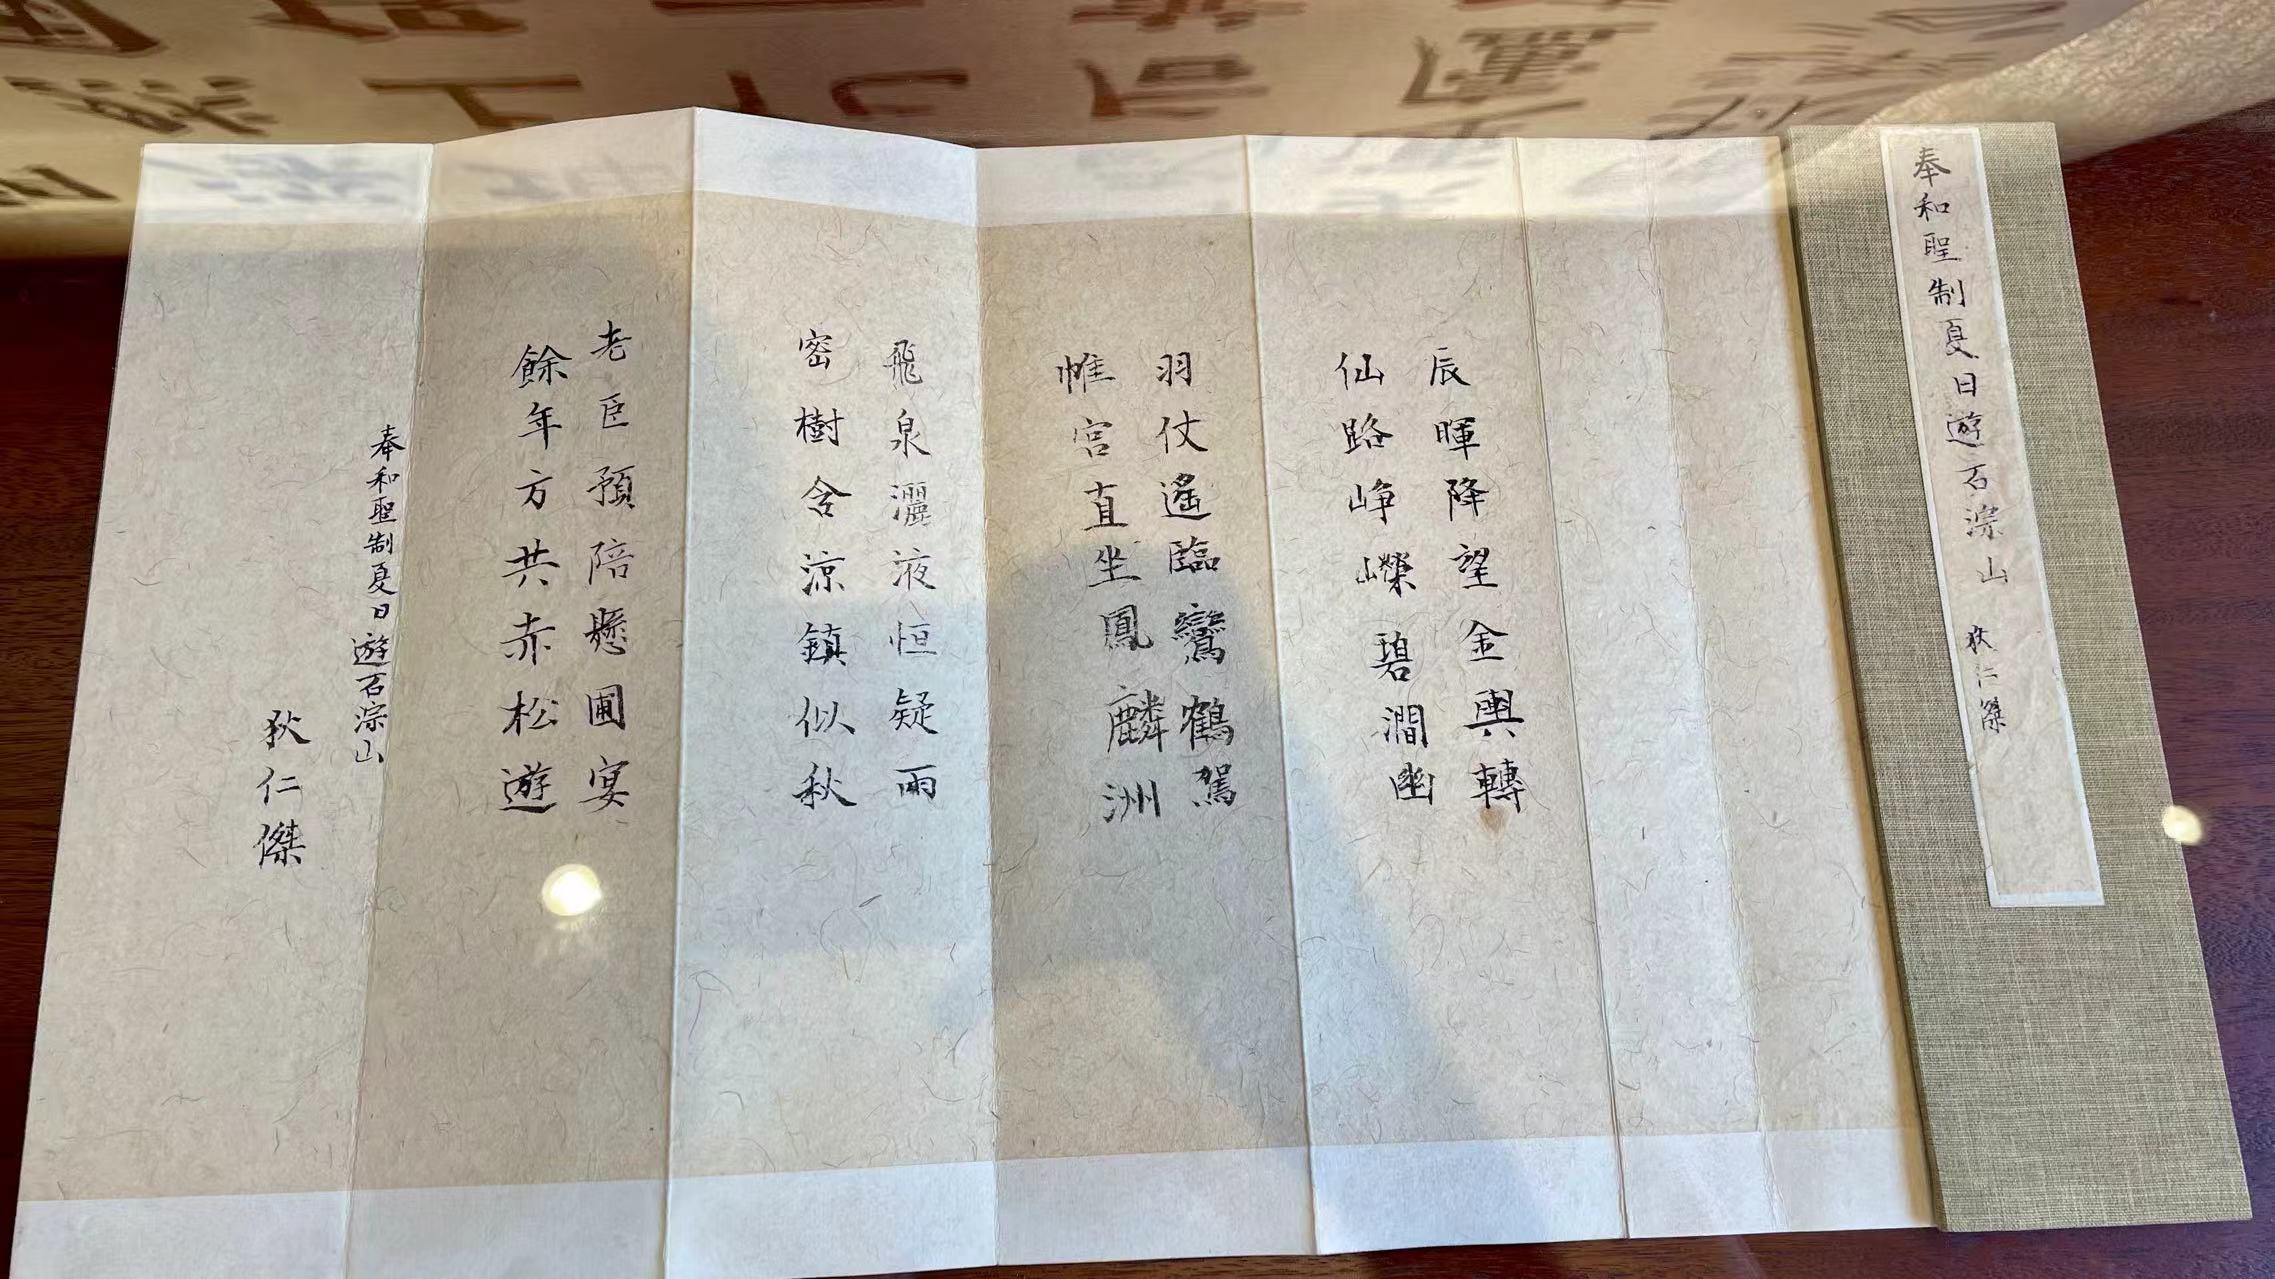 奉和聖制夏日遊石淙山 狄仁傑
辰暉降望金輿轉
仙路崢嶸碧澗幽
羽仗遙臨鸞鶴駕
帷宮直坐鳳麟洲
飛泉灑液恒疑雨
密樹含涼鎮似秋
老臣預陪懸圃宴
餘年方共赤松遊
奉和聖制夏日遊石淙山
狄仁傑